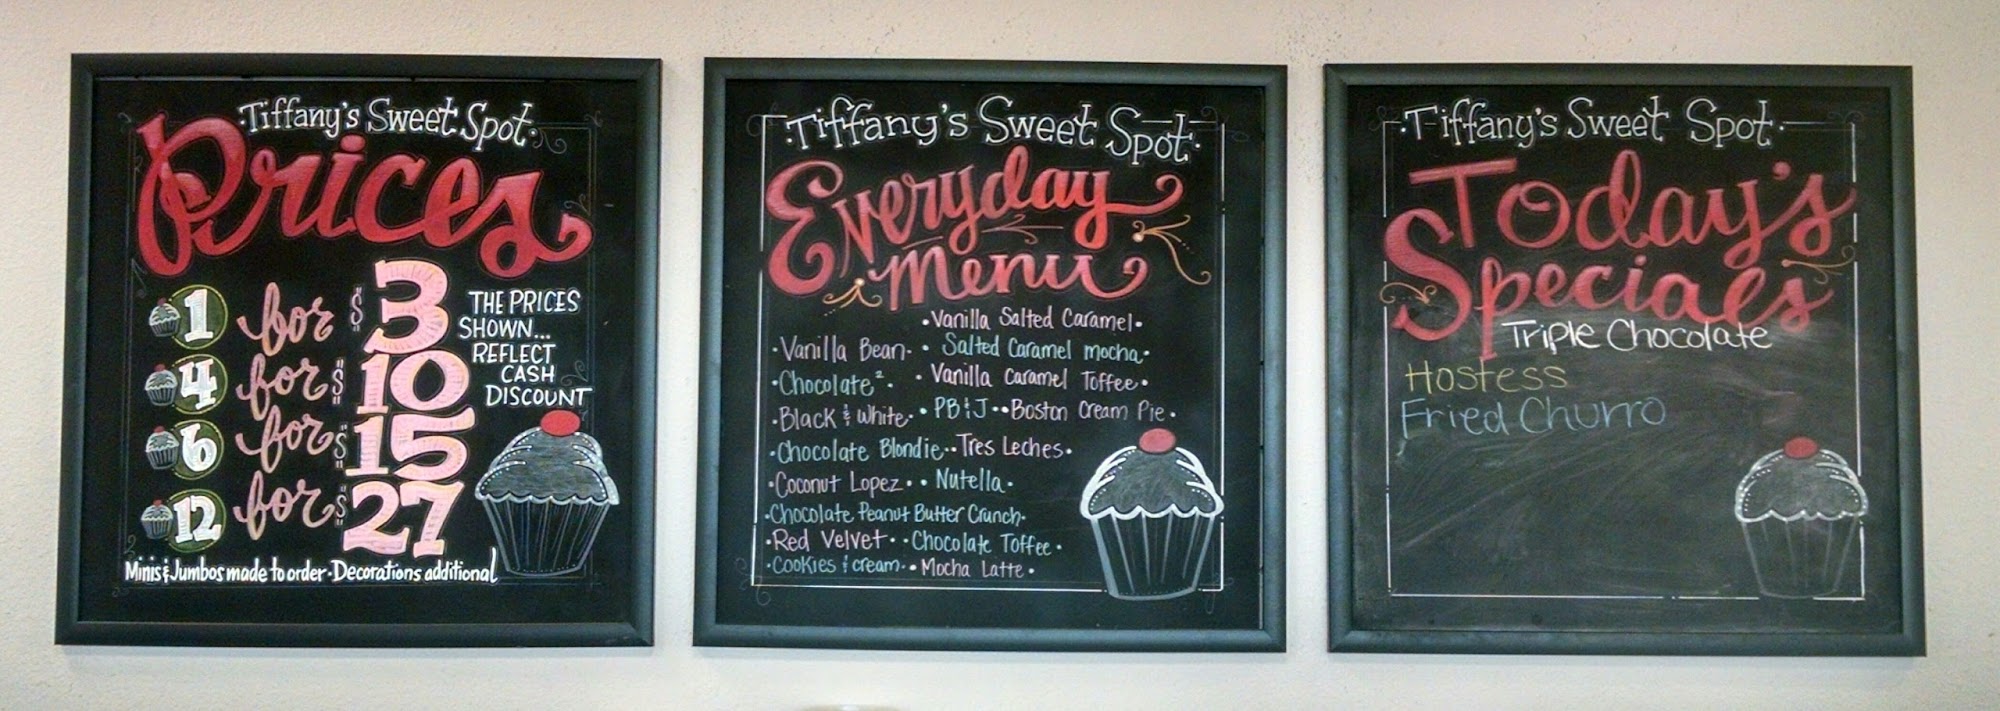 ·Tiffany's Sweet Spot·
Prices
1 for $3
4 for $10
6 for $15
12 for $27
THE PRICES
SHOWN...
REFLECT
CASH
DISCOUNT
Minis & Jumbos made to order · Decorations additional
·Tiffany's Sweet Spot·
Everyday
Menu
·Vanilla Salted Caramel·
·Vanilla Bean· · Salted Caramel mocha·
·Chocolate²· · Vanilla Caramel Toffee·
·Black & White· · PB&J· ·Boston Cream Pie·
·Chocolate Blondie· ·Tres Leches·
·Coconut Lopez· · Nutella·
·Chocolate Peanut Butter Crunch·
·Red Velvet· ·Chocolate Toffee·
·Cookies & cream· · Mocha Latte·
·Tiffany's Sweet Spot·
Today's
Specials
Triple Chocolate
Hostess
Fried Churro